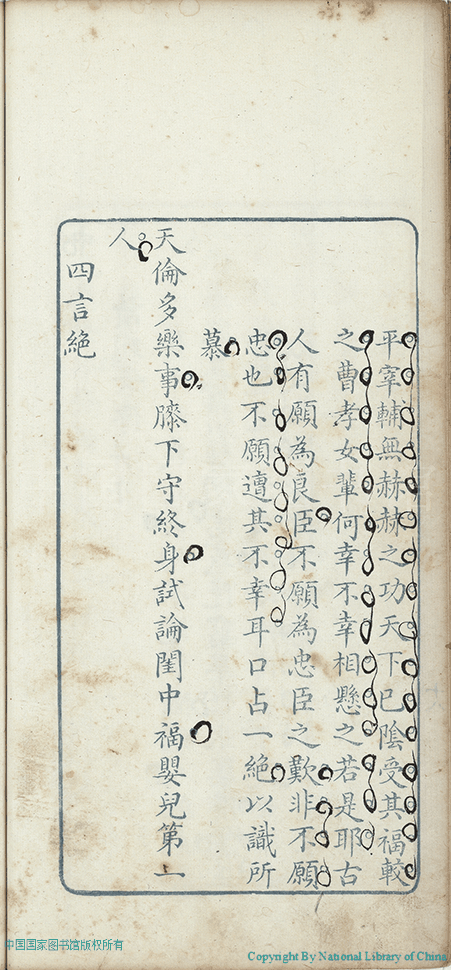 平宰輔無赫赫之功天下已陰受其福較
之曹孝女輩何幸不幸相懸之若是耶古
人有願為良臣不願為忠臣之歎非不願
忠也不願遭其不幸耳口占一絕以識所
慕
天倫多樂事膝下守終身試論閨中福嬰兒第一
人
四言絕
中国国家图书馆版权所有
Copyright By National Library of China